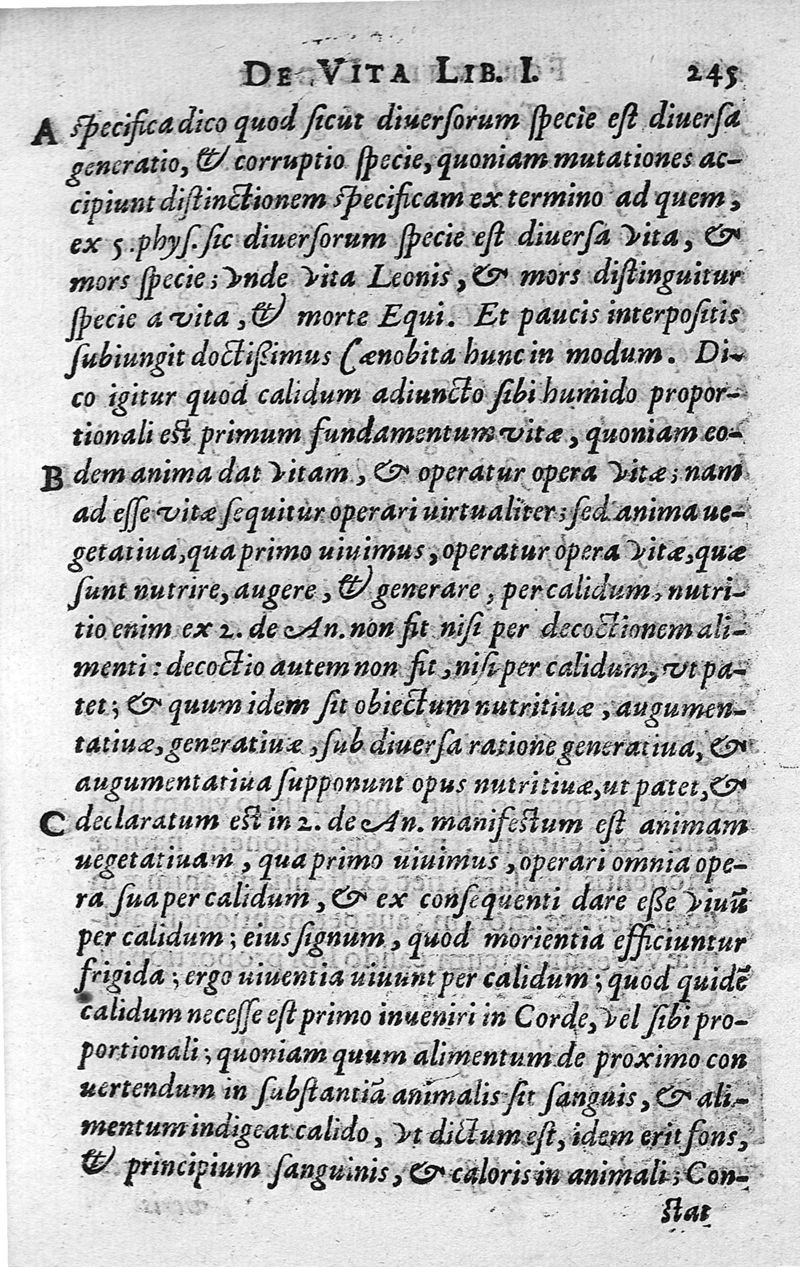 DE VITA LIB. I. 245
A specifica dico quod sicut diuersorum specie est diuersa
generatio, & corruptio specie, quoniam mutationes ac-
cipiunt distinctionem specificam ex termino ad quem,
ex 5. phys. sic diuersorum specie est diuersa vita, &
mors specie; vnde vita Leonis, & mors distinguitur
specie a vita, & morte Equi. Et paucis interpositis
subiungit doctißimus Cænobita hunc in modum. Di-
co igitur quod calidum adiuncto sibi humido propor-
tionali est primum fundamentum vitæ, quoniam eo-
B dem anima dat vitam, & operatur opera vitæ; nam
ad esse vitæ sequitur operari uirtualiter; sed anima ue-
getatiua, qua primo uiuimus, operatur opera vitæ, quæ
sunt nutrire, augere, & generare, per calidum, nutri-
tio enim ex 2. de An. non fit nisi per decoctionem ali-
menti: decoctio autem non fit, nisi per calidum, vt pa-
tet; & quum idem sit obiectum nutritiuæ, augumen-
tatiuæ, generatiuæ, sub diuersa ratione generatiua, &
augumentatiua supponunt opus nutritiuæ, ut patet, &
C declaratum est in 2. de An. manifestum est animam
uegetatiuam, qua primo uiuimus, operari omnia ope-
ra sua per calidum, & ex consequenti dare eße viuũ
per calidum; eius signum, quod morientia efficiuntur
frigida; ergo uiuentia uiuunt per calidum; quod quidẽ
calidum necesse est primo inueniri in Corde, vel sibi pro-
portionali; quoniam quum alimentum de proximo con
uertendum in substantiã animalis sit sanguis, & ali-
mentum indigeat calido, vt dictum est, idem erit fons,
& principium sanguinis, & caloris in animali; Con-
stat